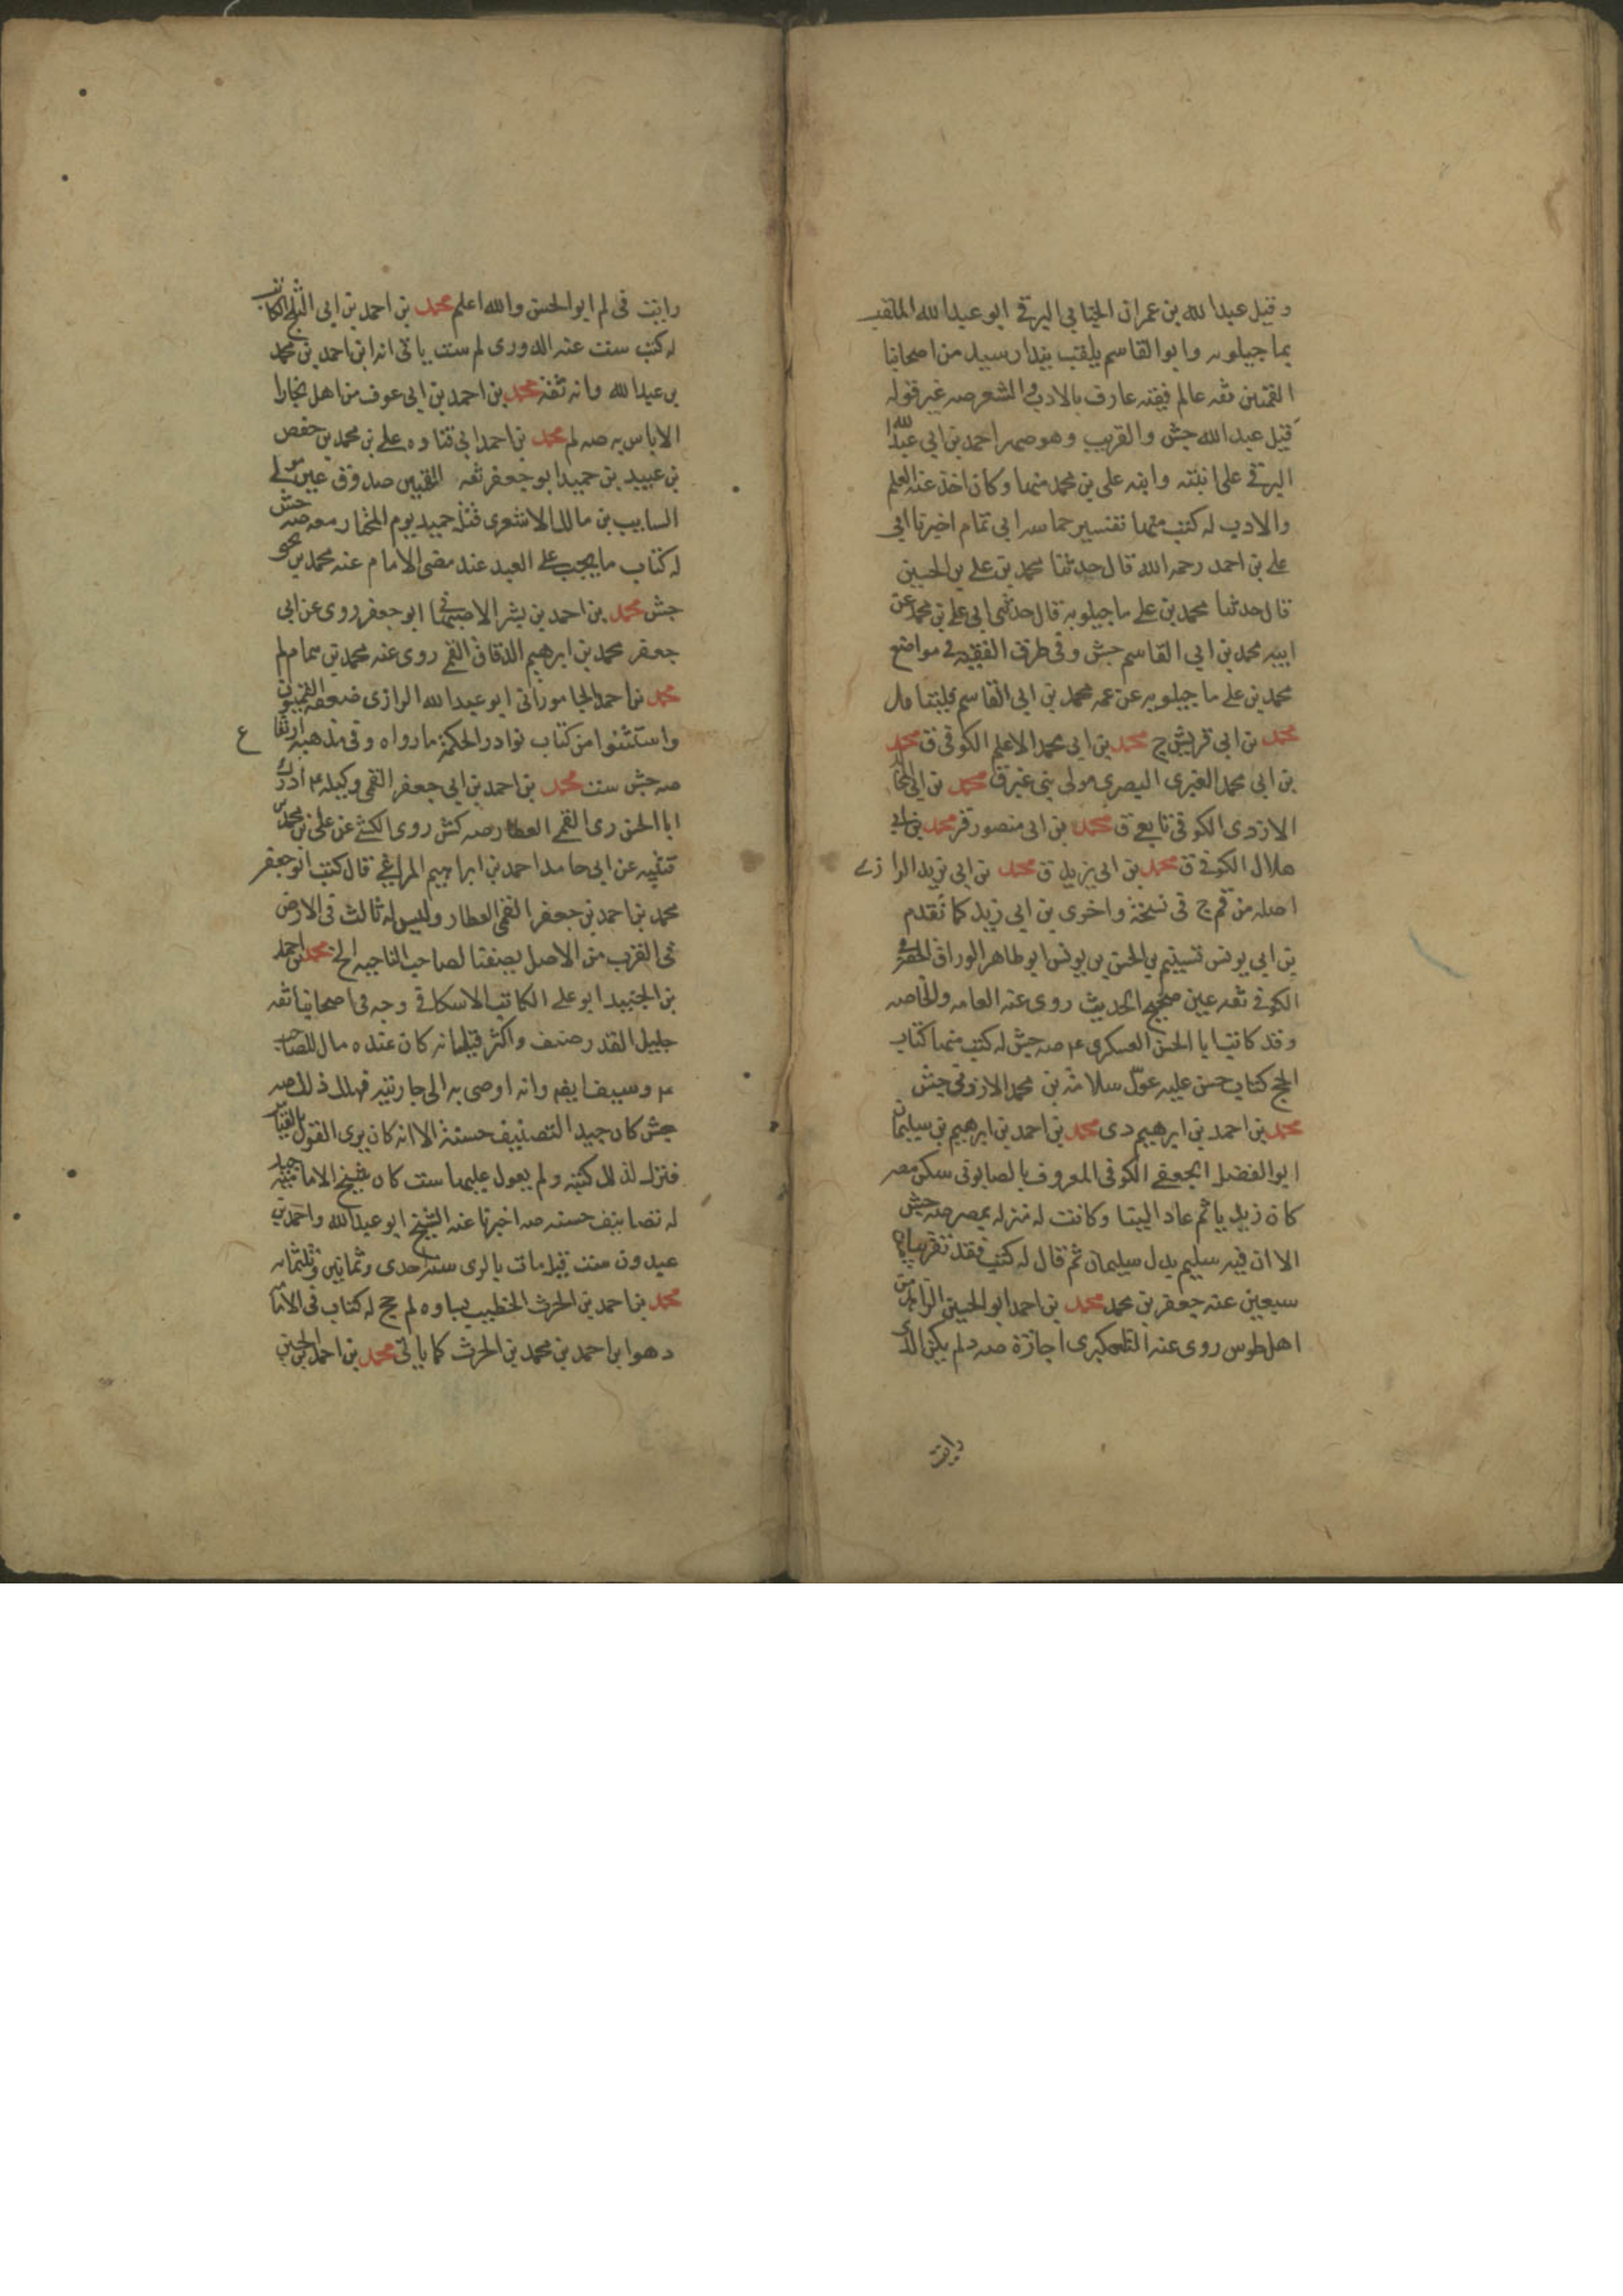 وقيل عبدالله بن عمران الجنابي البرقي ابو عبدالله الملقب
بماجيلويه وابو القاسم يلقب بندار سيد من اصحابنا
القميين ثقه عالم فقيه عارف بالادب والشعر صه غير قوله
قيل عبدالله جش والقريب وهو صهر احمد بن ابي عبدالله
البرقي على ابنته وابنه علي بن محمد منها وكان اخذ عنه العلم
والادب له كتب منها تفسير حماسه ابي تمام اخبرنا ابي
علي بن احمد رحمه الله قال حدثنا محمد بن علي بن الحسين
قال حدثنا محمد بن علي ماجيلويه قال حدثني ابي علي بن محمد عن
ابيه محمد بن ابي القاسم جش وفي طرق الفقيه في مواضع
محمد بن علي ماجيلويه عن عمه محمد بن ابي القاسم
محمد بن ابي قريش ج محمد بن ابي محمد الاعلم الكوفي ق محمد
بن ابي محمد العنبري البصري مولى بني عنبر ق محمد بن ابي
الازدى الكوفي تابعي ق محمد بن ابي منصور قر محمد بن ابي
هلال الكوفي ق محمد بن ابي يزيد ق محمد بن ابي زيد الرازي
اصله من قم ج في نسخة واخرى بن ابي زيد كما تقدم
بن ابي يونس تسنيم بن الحسن بن يونس ابو طاهر الوراق الحضرمي
الكوفي ثقه عين صحيح الحديث روى عنه العامه والخاصه
وقد كاتب ابا الحسن العسكري ع صه جش له كتب منها كتاب
الحج كتاب حسن عليه عول سلامة بن محمد الازدي جش
محمد بن احمد بن ابرهيم دى محمد بن احمد بن ابرهيم بن سليمان
ابو الفضل الجعفي الكوفي المعروف بالصابوني سكن مصر
كان زيديا ثم عاد الينا وكانت له منزله بمصر صه جش
الا ان فيه سليم بدل سليمان ثم قال له كتب
سبعين عنه جعفر بن محمد محمد بن احمد ابو الحسين الزاهد من
اهل طوس روى عنه التلعكبرى اجازة صه دلم يكن الذي
وايت
وايت في لم ابو الحسن والله اعلم محمد بن احمد بن ابي الثلج الكاتب
له كتب ست عنه الدورى لم ست ياتي انه ابن احمد بن محمد
بن عبدالله وانه ثقة محمد بن احمد بن ابي عوف من اهل بخارا
لاباس به صه لم محمد بن احمد ابي قتاده علي بن محمد بن حفص
بن عبيد بن حميد ابو جعفر ثقه القميين صدوق عين مولى
السايب بن مالك الاشعرى قتل حميد يوم المختار معه صه جش
له كتاب ما يجب على العبد عند مضي الامام عنه محمد بن يحيى
جش محمد بن احمد بن بشر الاصبهاني ابو جعفر روى عن ابي
جعفر محمد بن ابرهيم الدقاق القمي روى عنه محمد بن همام لم
محمد بن احمد الجاموراني ابو عبدالله الرازى ضعفه القميون
واستثنوا من كتاب نوادر الحكمة مارواه وفي مذهبه ارتفاع
صه جش ست محمد بن احمد بن ابي جعفر القمي وكيله ع ادرك
ابا الحسن رى القمي العطار صه كش روى الكشي عن علي بن محمد بن
قتيبه عن ابي حامد احمد بن ابراهيم المراغي قال كتب ابو جعفر
محمد بن احمد بن جعفر القمي العطار وليس له ثالث في الارض
في القرب من الاصل يصفنا لصاحب الناحيه الخ محمد بن احمد
بن الجنيد ابو علي الكاتب الاسكافي وجه في اصحابنا ثقه
جليل القدر صنف واكثر قيل انه كان عنده مال للصاحب
ع وسيف ايضا وانه اوصى به الى جاريته فهلك ذلك صه
جش كان جيد التصنيف حسنة الا انه كان يرى القول بالقياس
فترك لذلك كتبه ولم يعول عليها ست كان شيخ الاماميه جيد
له تصانيف حسنه صه اخبرنا عنه الشيخ ابو عبدالله واحمد بن
عبدون ست قيل مات بالرى سنة احدى وثمانين وثلثمائه
محمد بن احمد بن الحرث الخطيب بساوه لم جخ له كتاب في الامامه
دهو ابن احمد بن محمد بن الحرث كما ياتي محمد بن احمد الحسين